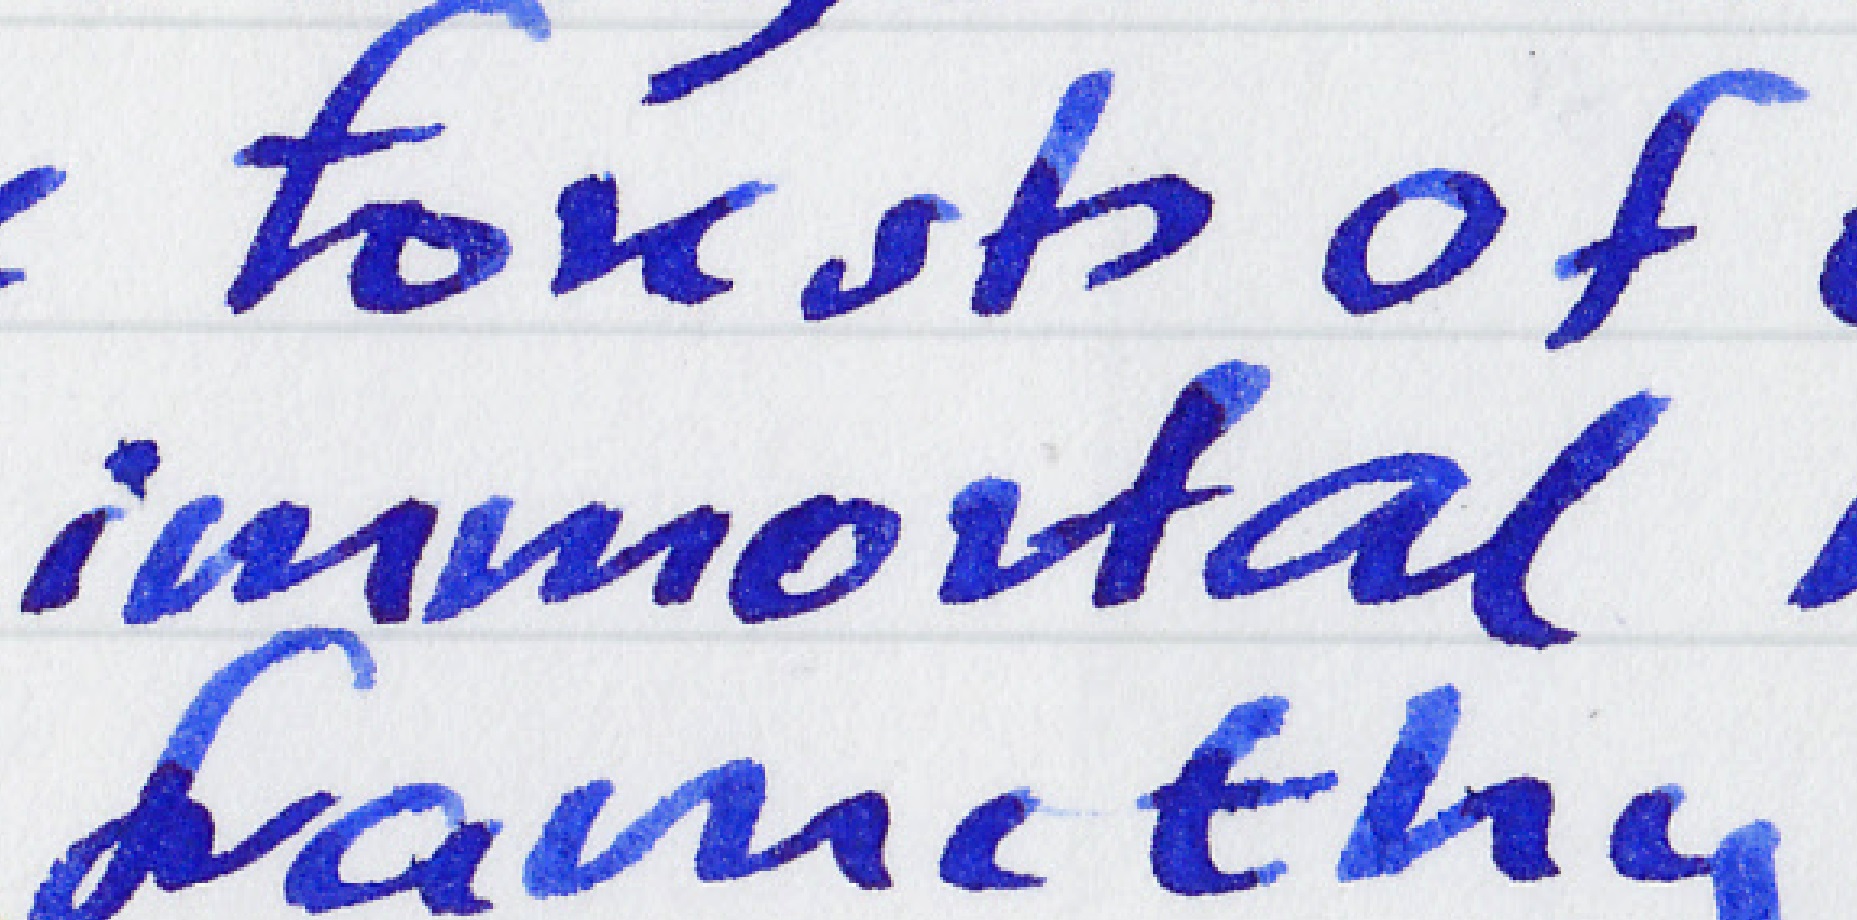 forests of
immortal
frame thy